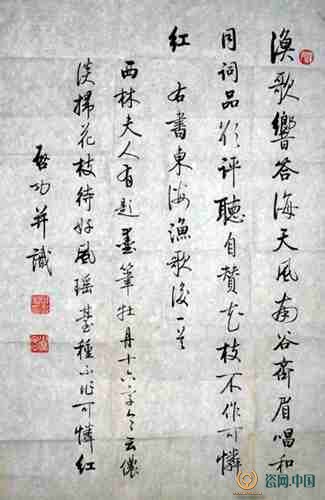 漁歌響答海天風南谷齊眉唱和
同詞品欲評聽自贊花枝不作可憐
紅 右書東海漁歌後一首
西林夫人有題墨筆牡丹十六字令云儂
淡掃花枝待好風瑤臺種不作可憐紅
啟功并識
瓷网.中国